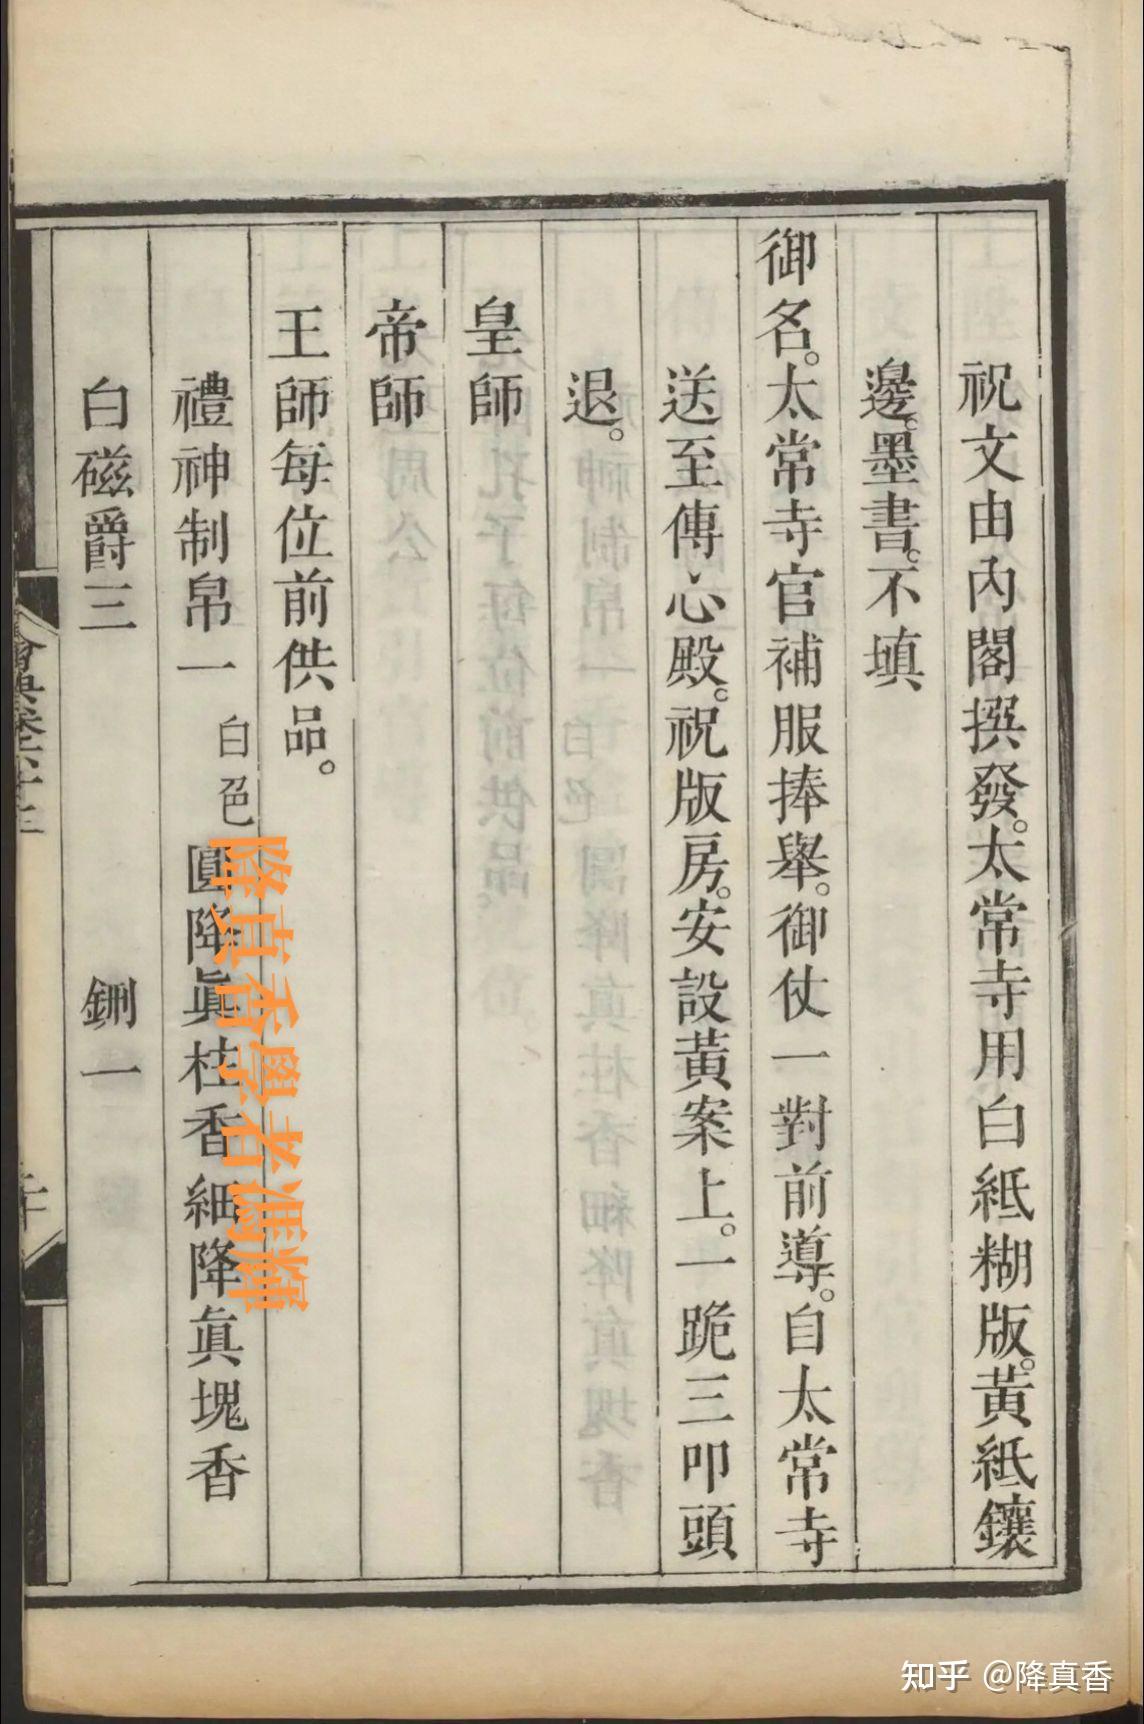 祝文由內閣撰發。太常寺用白紙糊版。黃紙鑲
邊。墨書。不填
御名。太常寺官補服捧舉。御仗一對前導。自太常寺
送至傳心殿。祝版房。安設黃案上。一跪三叩頭
退。
皇師
帝師
王師每位前供品。
禮神制帛一 白色 圓降眞柱香細降眞塊香
白磁爵三 鉶一
降真香學者馮輝
知乎 @降真香